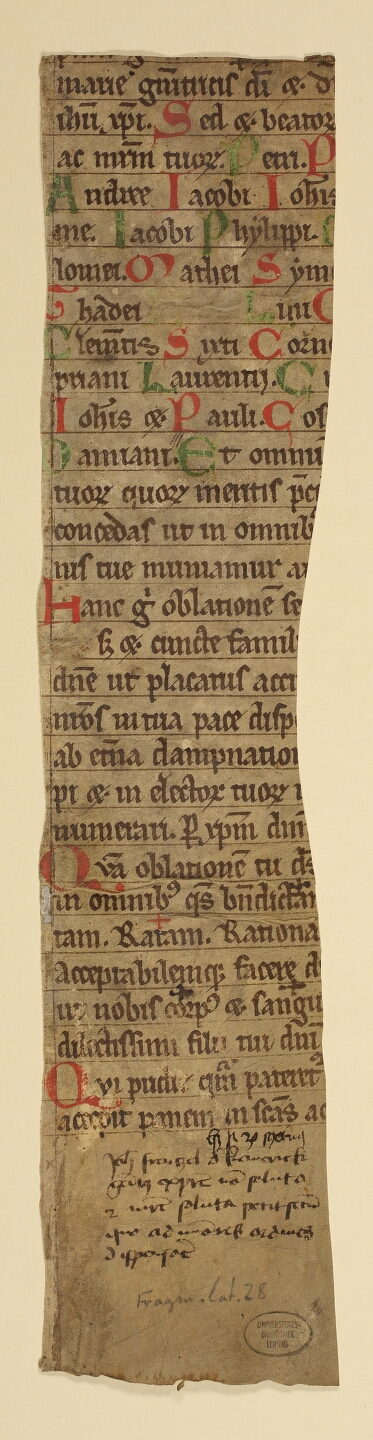 marie genitricis di & d
ihu xpi. Sed & beator
ac mrm tuor. Petri. P
Andree Iacobi Iohis
me. Iacobi Phylippi.
lomei. Mathei Sym
Thadei Lini C
Clemtis Sixti Corn
priani Laurentij. C
Iohis & Pauli. Cos
Damiani. Et omni
tuor quor meritis pc
concedas ut in omnib
nis tue muniamur a
Hanc g oblatione se
& cuncte famil
dne ut placatus acci
nros in tua pace disp
ab etna dampnation
pi & in elector tuor
numerari. P xpm dm
Qua oblatione tu ds
in omnib9 qs bndicta
tam. Ratam. Rationa
Acceptabilemq; facere d
ut nobis corp9 & sangu
dilectissimi filii tui dm
Qui pridie qm pateret
accepit panem in scas ac
soluta
soluta petit
Fragm. lat. 28
UNIVERSITÄTS-
BIBLIOTHEK
LEIPZIG